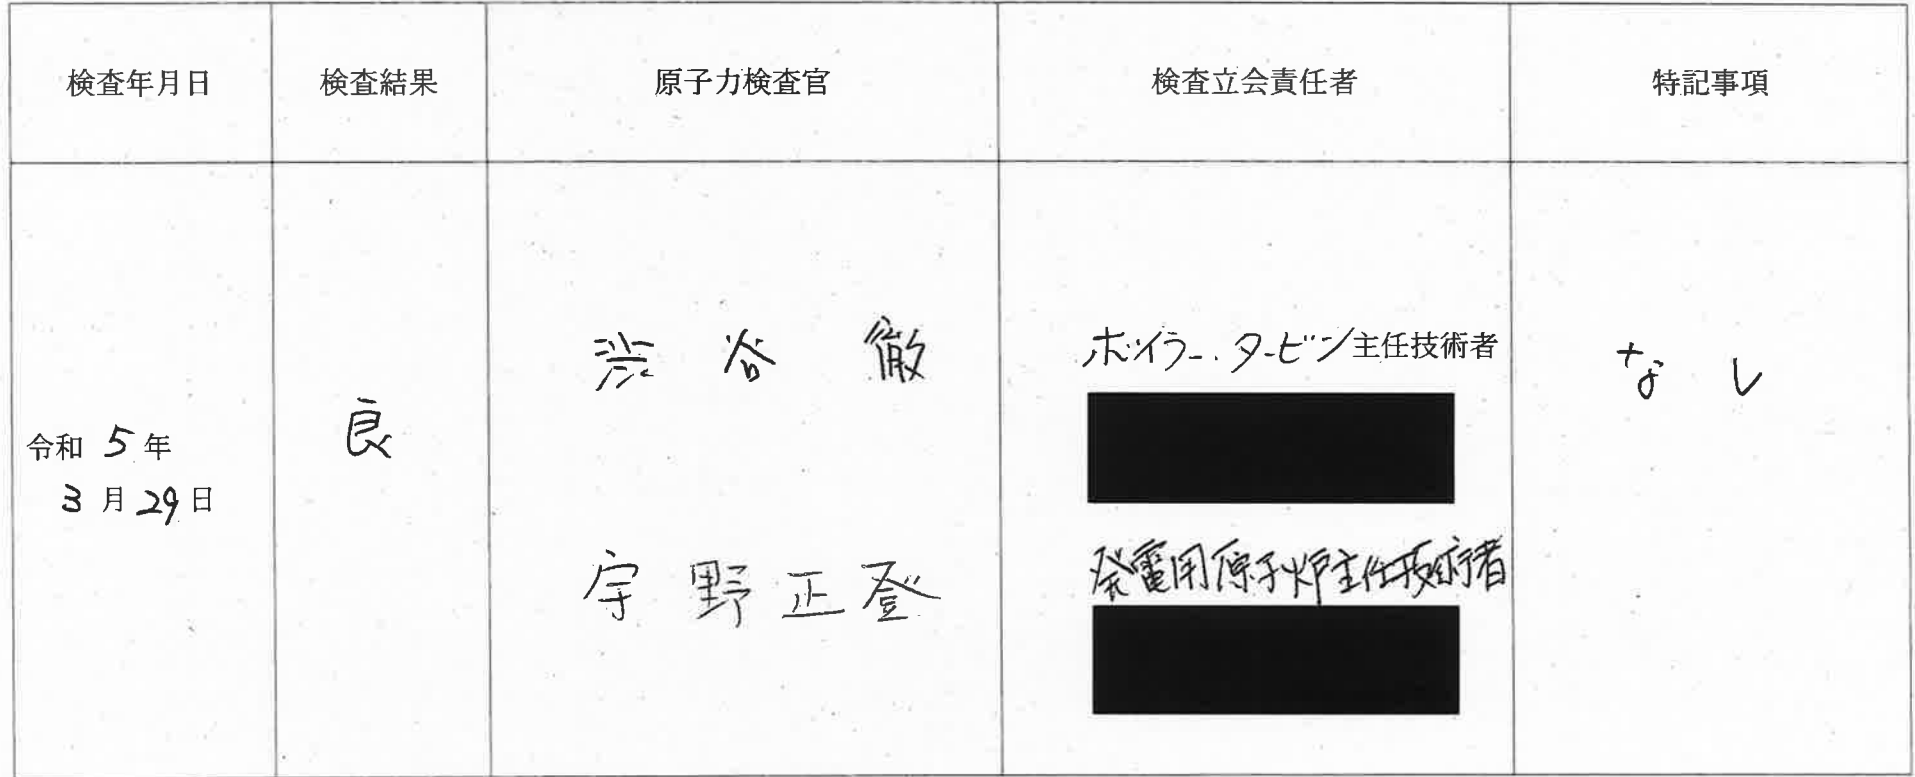 検査年月日
検査結果
原子力検査官
検査立会責任者
特記事項
令和 5 年
3 月 29 日
良
渋谷 徹
宇野正登
ボイラー・タービン主任技術者
発電用原子炉主任技術者
なし